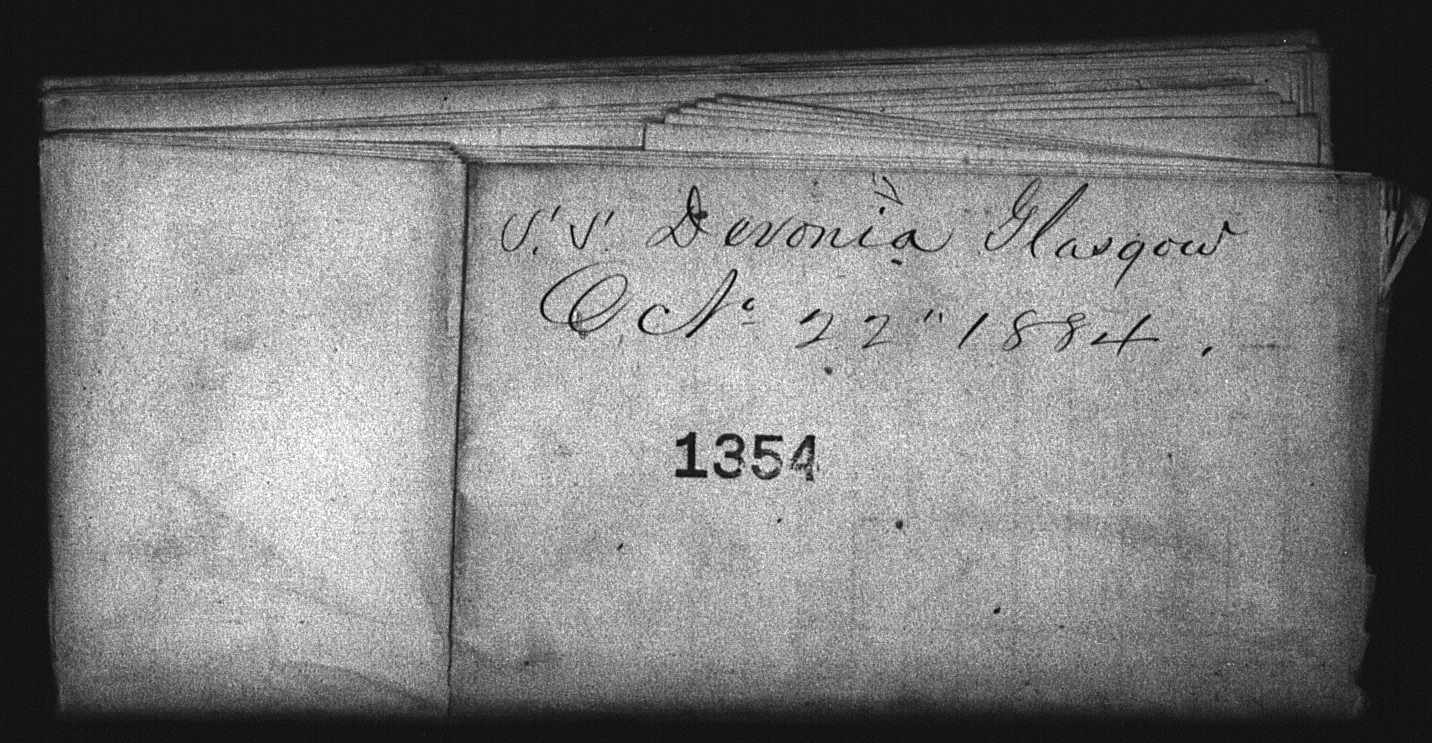 S.S. Devonia Glasgow
Oct 22" 1884.
1354